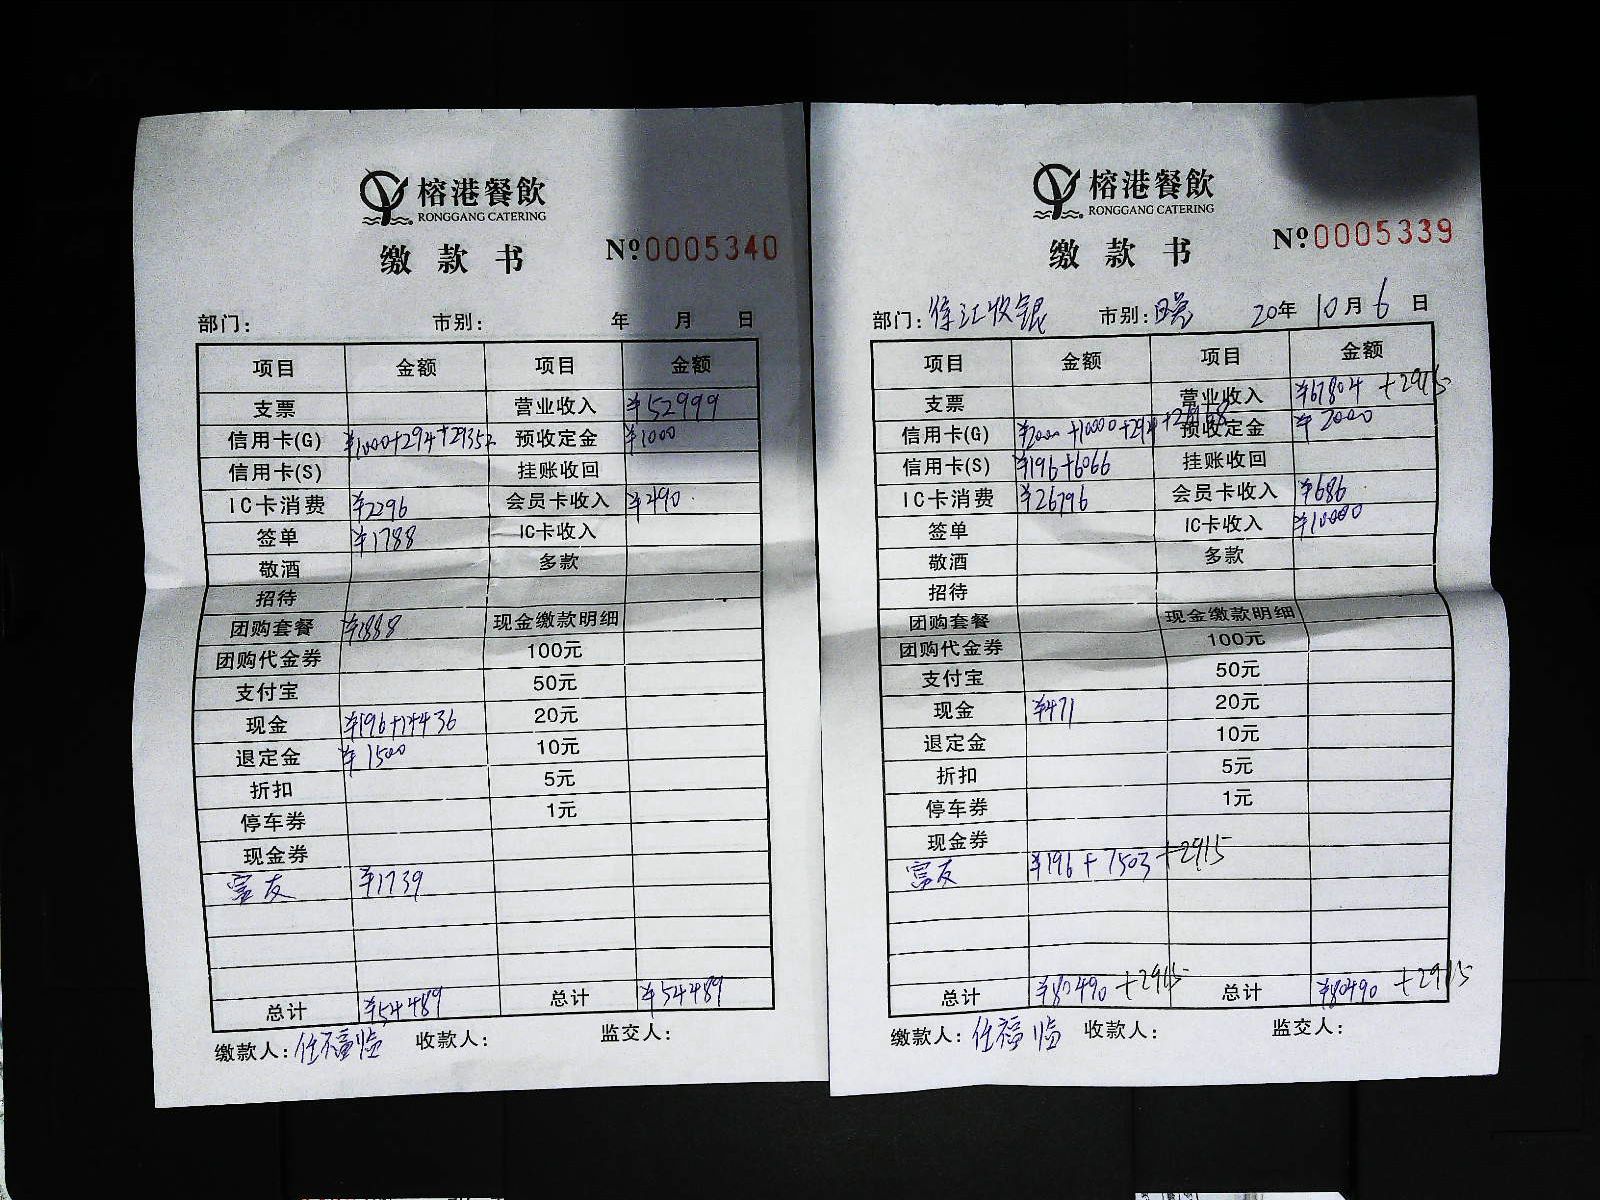 榕港餐飲
RONGGANG CATERING
缴款书 №0005340
部门: 市别: 年 月 日
项目 金额 项目 金额
支票 营业收入 ¥52999
信用卡(G) ¥1000+294+29352 预收定金 ¥1000
信用卡(S) 挂账收回
IC卡消费 ¥2296 会员卡收入 ¥490
签单 ¥1788 IC卡收入
敬酒 多款
招待
团购套餐 ¥1888 现金缴款明细
团购代金券 100元
支付宝 50元
现金 ¥196+14436 20元
退定金 ¥1500 10元
折扣 5元
停车券 1元
现金券
富友 ¥1739
总计 ¥54489 总计 ¥54489
缴款人:任福临 收款人: 监交人:
榕港餐飲
RONGGANG CATERING
缴款书 №0005339
部门:徐汇收银 市别:晚 20年 10月 6日
项目 金额 项目 金额
支票 营业收入 ¥67804 +2915
信用卡(G) ¥2000+10000+294+26968 预收定金 ¥2000
信用卡(S) ¥196+6066 挂账收回
IC卡消费 ¥26796 会员卡收入 ¥686
签单 IC卡收入 ¥10000
敬酒 多款
招待
团购套餐 现金缴款明细
团购代金券 100元
支付宝 50元
现金 ¥471 20元
退定金 10元
折扣 5元
停车券 1元
现金券
富友 ¥196+7503+2915
总计 ¥80490+2915 总计 ¥80490+2915
缴款人:任福临 收款人: 监交人: